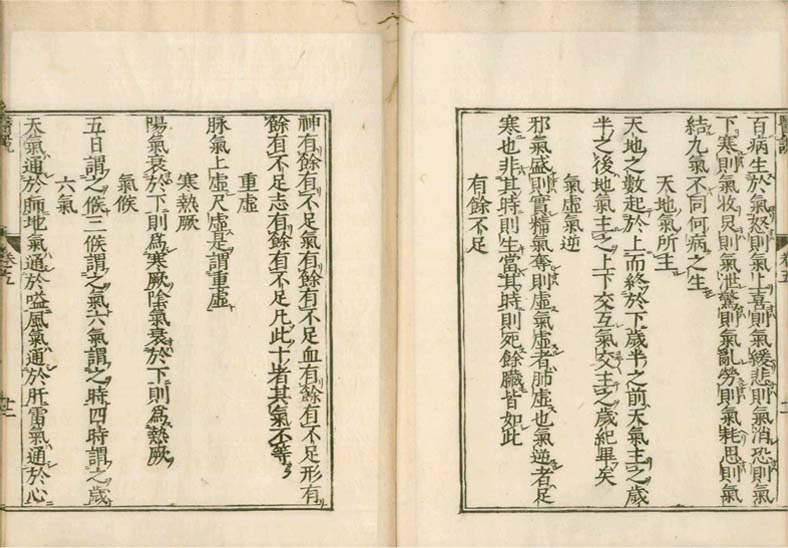 百病生於氣怒則氣上喜則氣緩悲則氣消恐則氣
下寒則氣收炅則氣泄驚則氣亂勞則氣耗思則氣
結九氣不同何病之生
天地氣所主
天地之數起於上而終於下歲半之前天氣主之歲
半之後地氣主之上下交互氣交主之歲紀畢矣
氣虛氣逆
邪氣盛則實精氣奪則虛氣虛者肺虛也氣逆者足
寒也非其時則生當其時則死餘臟皆如此
有餘不足
神有餘有不足氣有餘有不足血有餘有不足形有
餘有不足志有餘有不足凡此十者其氣不等
重虛
脉氣上虛尺虛是謂重虛
寒熱厥
陽氣衰於下則爲寒厥陰氣衰於下則爲熱厥
氣候
五日謂之候三候謂之氣六氣謂之時四時謂之歲
六氣
天氣通於肺地氣通於嗌風氣通於肝雷氣通於心
卷五